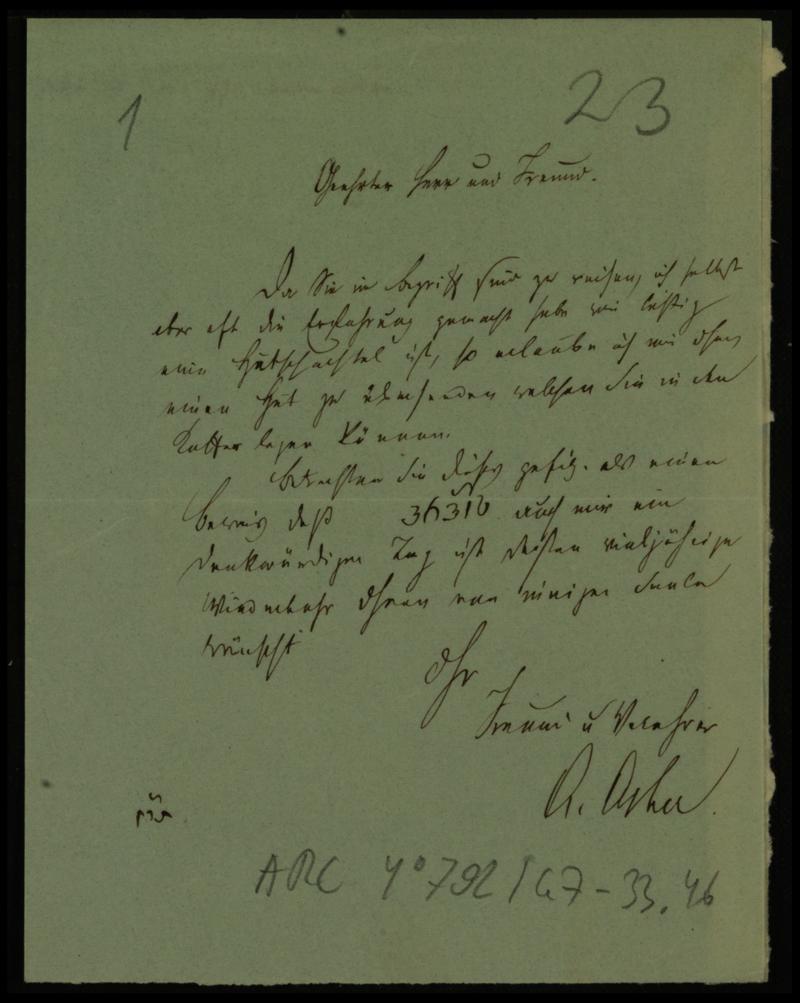 1
23
Geehrter Herr und Freund.
Da Sie im Begriff sind zu reisen, ich selbst
aber oft die Erfahrung gemacht habe wie lästig
eine Hutschachtel ist, so erlaube ich mir Ihnen
einen Hut zu übersenden welchen Sie in den
Koffer legen können.
Betrachten Sie dieses gefäll. als einen
Beweis daß auch mir ein
denkwürdiger Tag ist dessen vieljährige
Wiederkehr Ihnen von ganzer Seele
wünscht
Ihr
Freund u Verehrer
A. Asher
ARC 4° 792 / G7 - 33. 46